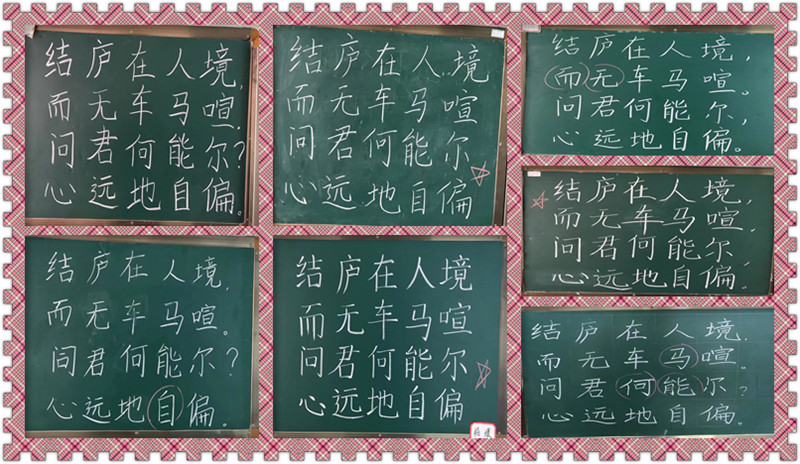 结庐在人境,
而无车马喧.
问君何能尔?
心远地自偏。
结庐在人境
而无车马喧
问君何能尔
心远地自偏
结庐在人境,
而无车马喧。
问君何能尔,
心远地自偏。
结庐在人境,
而无车马喧,
问君何能尔,
心远地自偏。
结庐在人境,
而无车马喧。
问君何能尔?
心远地自偏。
结庐在人境
而无车马喧
问君何能尔
心远地自偏
结庐在人境,
而无车马喧。
问君何能尔?
心远地自偏。